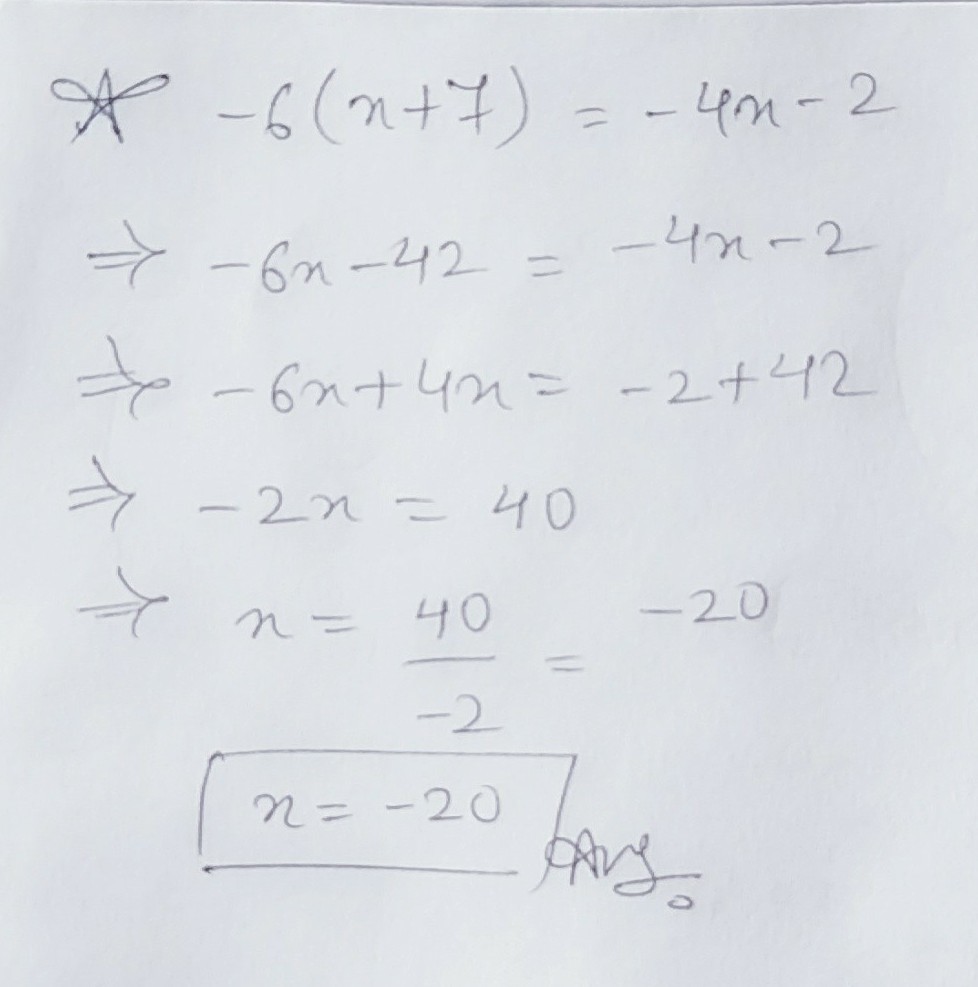 -6(x+7) = -4x-2
⇒ -6x-42 = -4x-2
⇒ -6x+4x = -2+42
⇒ -2x = 40
⇒ x = 40/-2 = -20
x = -20 Ans.